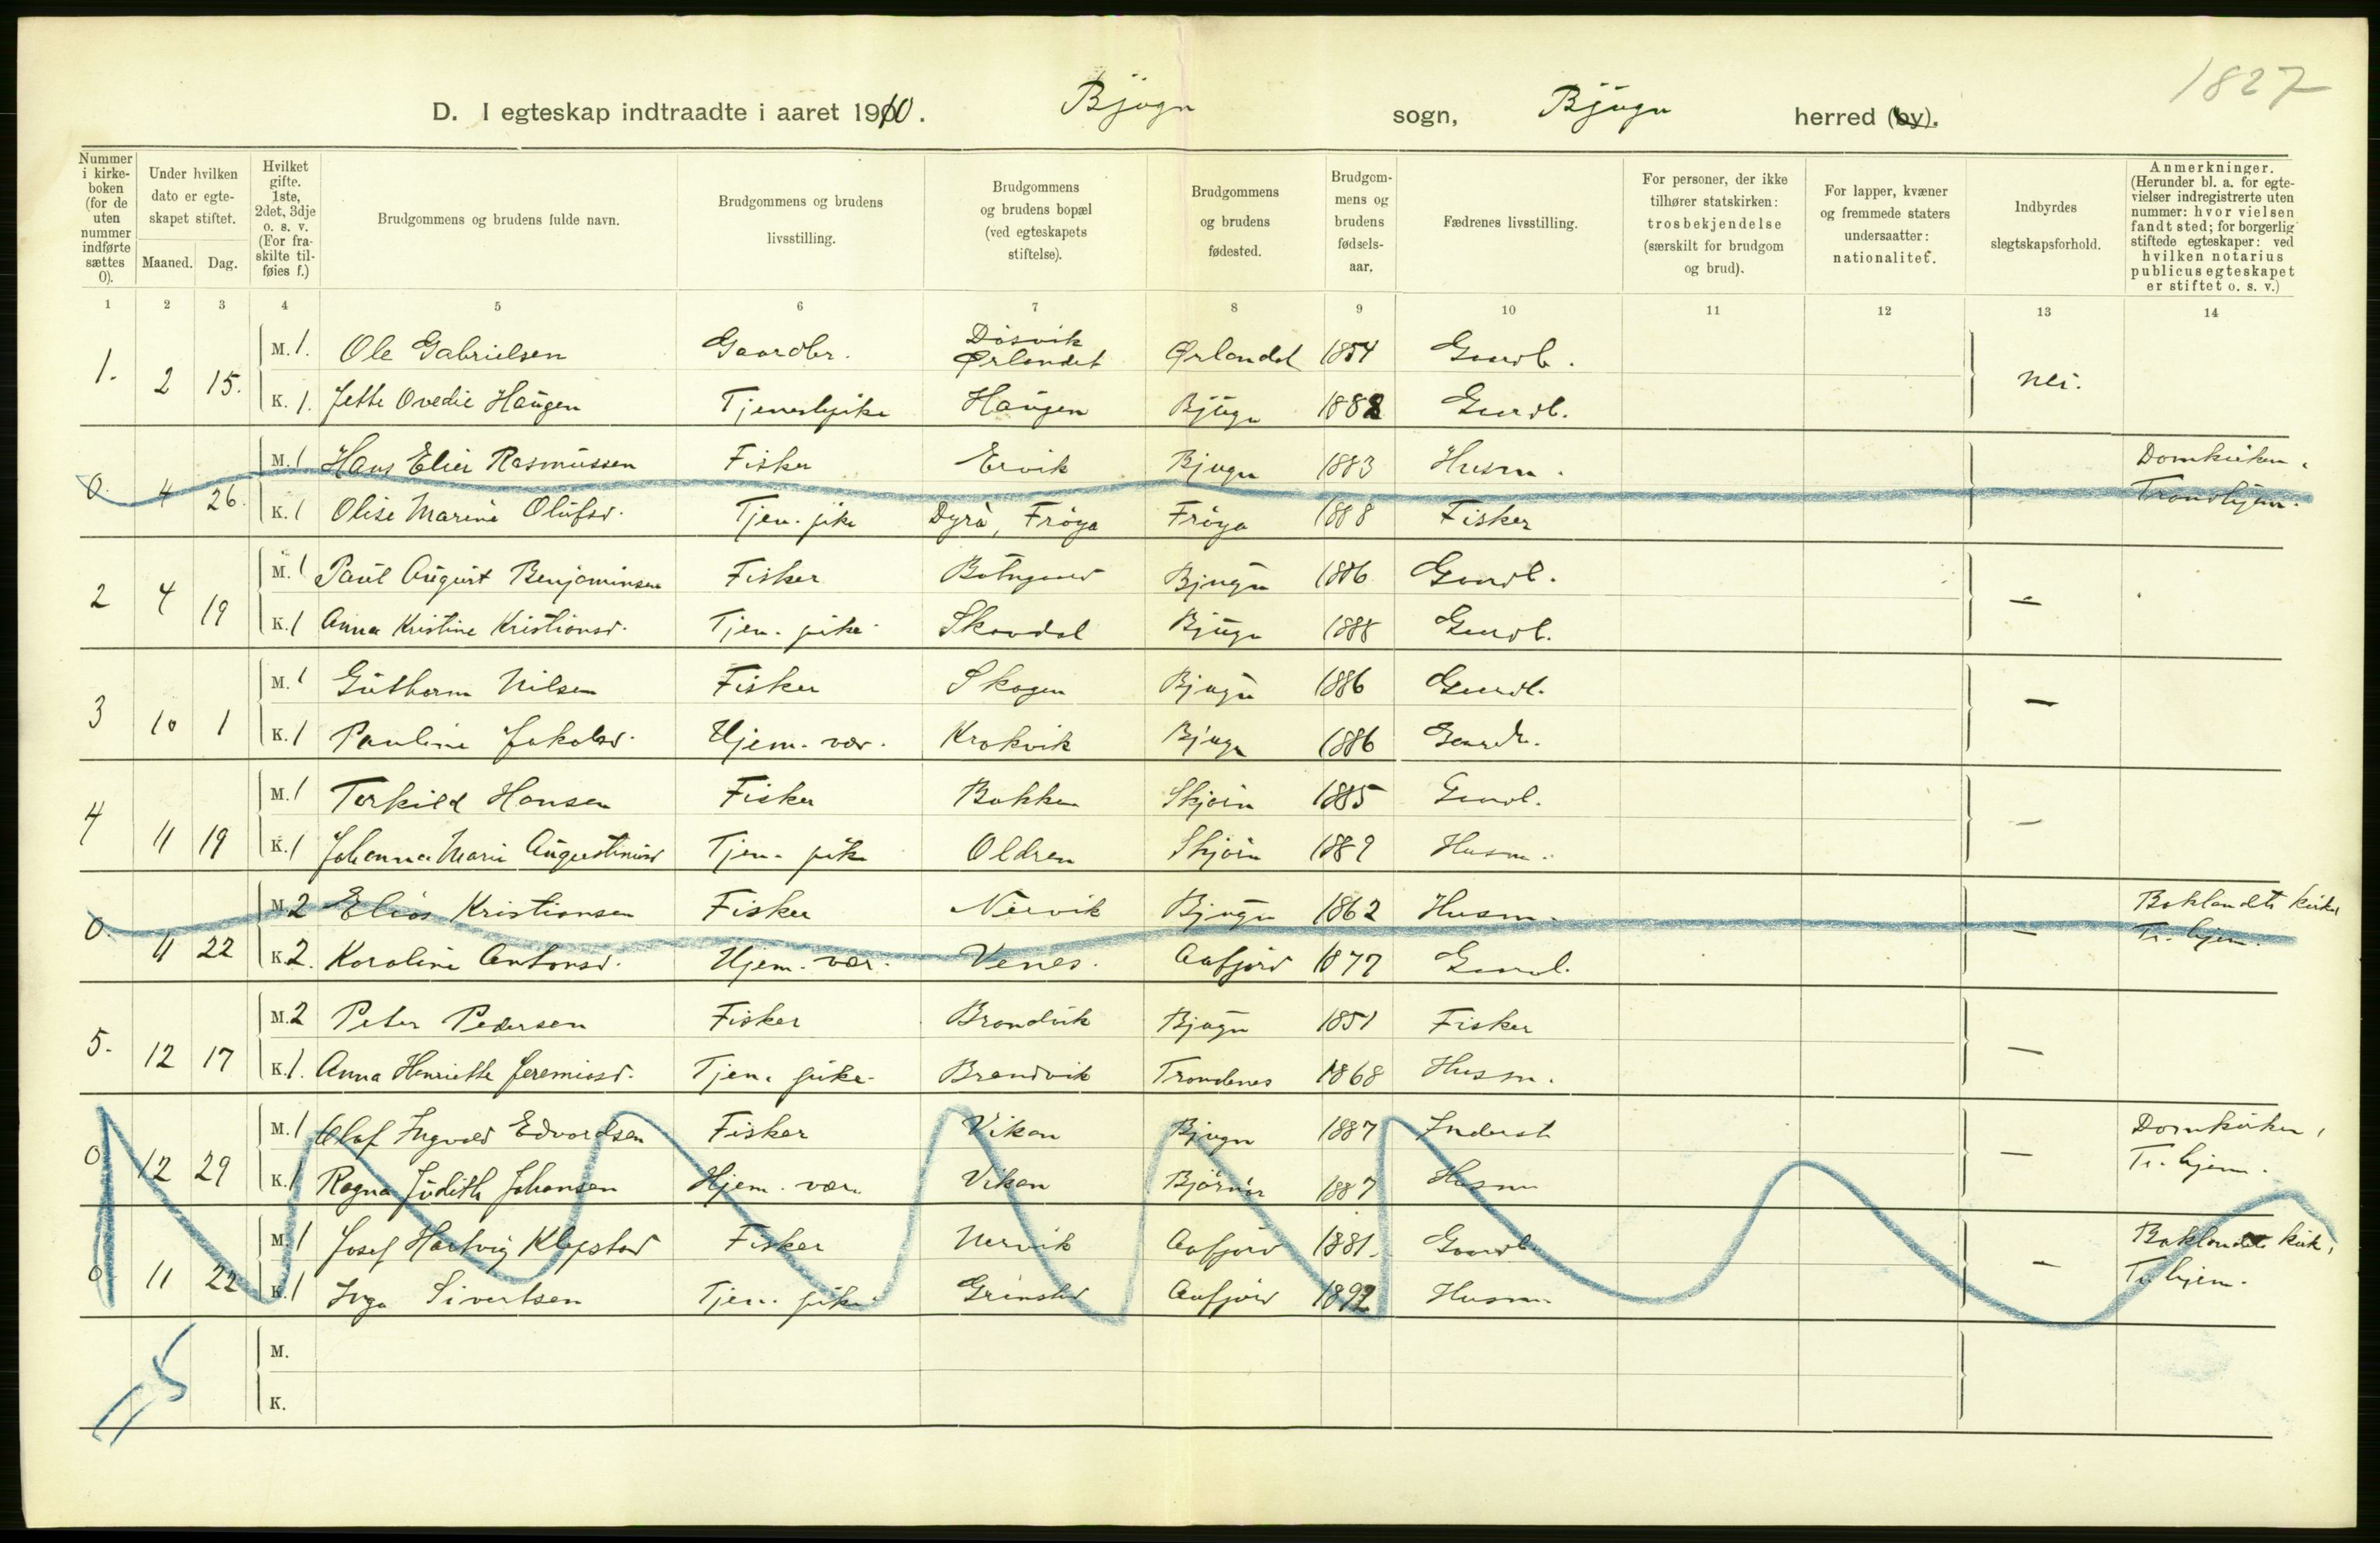 1827
D. I egteskap indtraadte i aaret 1910. Bjugn sogn, Bjugn herred (by).
Nummer i kirkeboken (for de uten nummer indførte sættes 0).
Under hvilken dato er egteskapet stiftet.
Maaned. Dag.
Hvilket gifte. 1ste, 2det, 3dje o. s. v. (For fraskilte tilføies f.)
Brudgommens og brudens fulde navn.
Brudgommens og brudens livsstilling.
Brudgommens og brudens bopæl (ved egteskapets stiftelse).
Brudgommens og brudens fødested.
Brudgommens og brudens fødselsaar.
Fædrenes livsstilling.
For personer, der ikke tilhører statskirken: trosbekjendelse (særskilt for brudgom og brud).
For lapper, kvæner og fremmede staters undersaatter: nationalitet.
Indbyrdes slegtskapsforhold.
Anmerkninger. (Herunder bl. a. for egtevielser indregistrerte uten nummer: hvor vielsen fandt sted; for borgerlig stiftede egteskaper: ved hvilken notarius publicus egteskapet er stiftet o. s. v.)
1 2 3 4 5 6 7 8 9 10 11 12 13 14
1. 2 15. M. 1. Ole Gabrielsen Gaardbr. Døsvik Ørlandet Ørlandet 1854 Gaardb. nei.
K. 1. Jette Ovedie Haugen Tjenestepike Haugen Bjugn 1882 Gaardb.
0. 4 26. M. 1 Hans Elier Rasmussen Fisker Ervik Bjugn 1883 Husm. Domkirken, Trondhjem.
K. 1 Olise Marine Olufsd. Tjen. pike Dyrø, Frøya Frøya 1888 Fisker
2 4 19 M. 1 Paul August Benjaminsen Fisker Botngaard Bjugn 1886 Gaardb. —
K. 1 Anna Kristine Kristiansd. Tjen. pike Skavdal Bjugn 1888 Gaardb.
3 10 1 M. 1 Guthorm Nilsen Fisker Skogen Bjugn 1886 Gaardb. —
K. 1 Pauline Jakobsd. Hjem. vær. Krokvik Bjugn 1886 Gaardb.
4 11 19 M. 1 Terkild Hansen Fisker Bakken Skjørn 1885 Gaardb. —
K. 1 Johanna Marie Augustinusd Tjen. pike Oldren Skjørn 1889 Husm.
0. 11 22 M. 2 Elias Kristiansen Fisker Nervik Bjugn 1862 Husm. — Baklandets kirke, Tr. hjem.
K. 2. Karoline Antonsd. Hjem. vær. Venes. Aafjord 1877 Gaardb.
5. 12 17 M. 2 Peter Pedersen Fisker Brandvik Bjugn 1851 Fisker —
K. 1. Anna Henriette Jeremiasd. Tjen. pike Brandvik Trondenes 1868 Husm.
0 12 29 M. 1 Olaf Ingvald Edvardsen Fisker Vikan Bjugn 1887 Inderst — Domkirken, Tr. hjem.
K. 1 Ragna Judith Johansen Hjem. vær. Vikan Bjørnør 1887 Husm
0. 11 22 M. 1 Josef Hartvig Klepstad Fisker Nervik Aafjord 1881. Gaardb. — Baklandets kirk, Tr. hjem.
K. 1 Inga Sivertsen Tjen. pike Aafjord 1892 Husm.
M.
K.
5